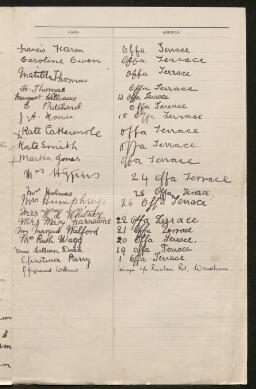 NAME. ADDRESS.
Francis Hearon Offa Terrace
Caroline Owen Offa Terrace
Matilda Thomas Offa Terrace
H. Thomas Offa Terrace
Margaret Williams 13 Offa Terrace
E. Pritchard Offa Terrace
J. A. Morris 15 Offa Terrace
Kate Cathermole Offa Terrace
Kate Smith Offa Terrace
Martha Jones Offa Terrace
Mrs Higgins 24 Offa Terrace
Mrs Holmes 25 Offa Terrace
Mrs Humphreys 26 Offa Terrace
Mrs Whitney
Mrs Mary 22 Offa Terrace
Margaret Walford 21 Offa Terrace
Mrs Ruth Wagg 20 Offa Terrace.
Lillian Dodd 19 Offa Terrace
Parry 1 Offa Terrace
Ruabon Rd, Wrexham